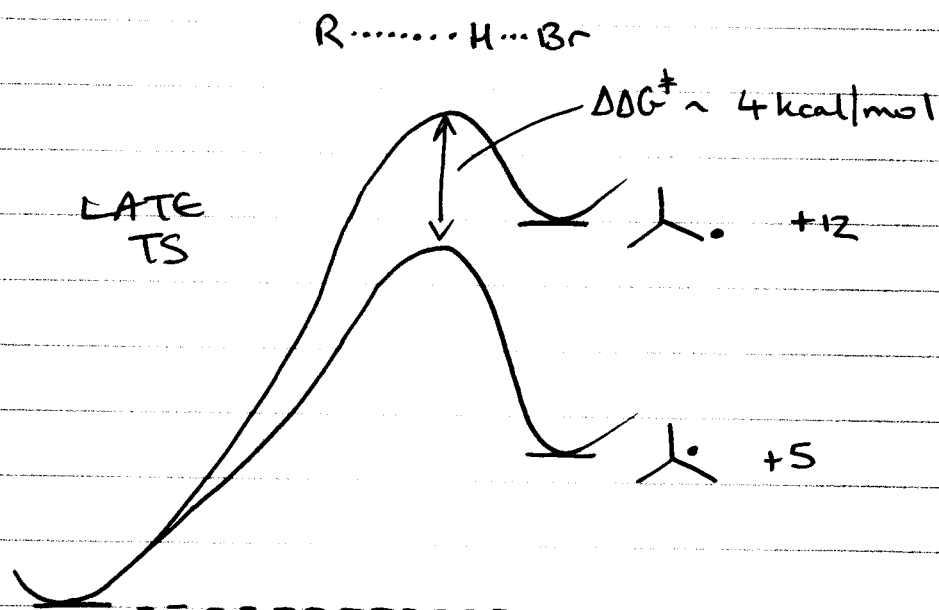 R········H···Br
ΔΔG‡ ~ 4 kcal/mol
LATE
TS
+12
+5